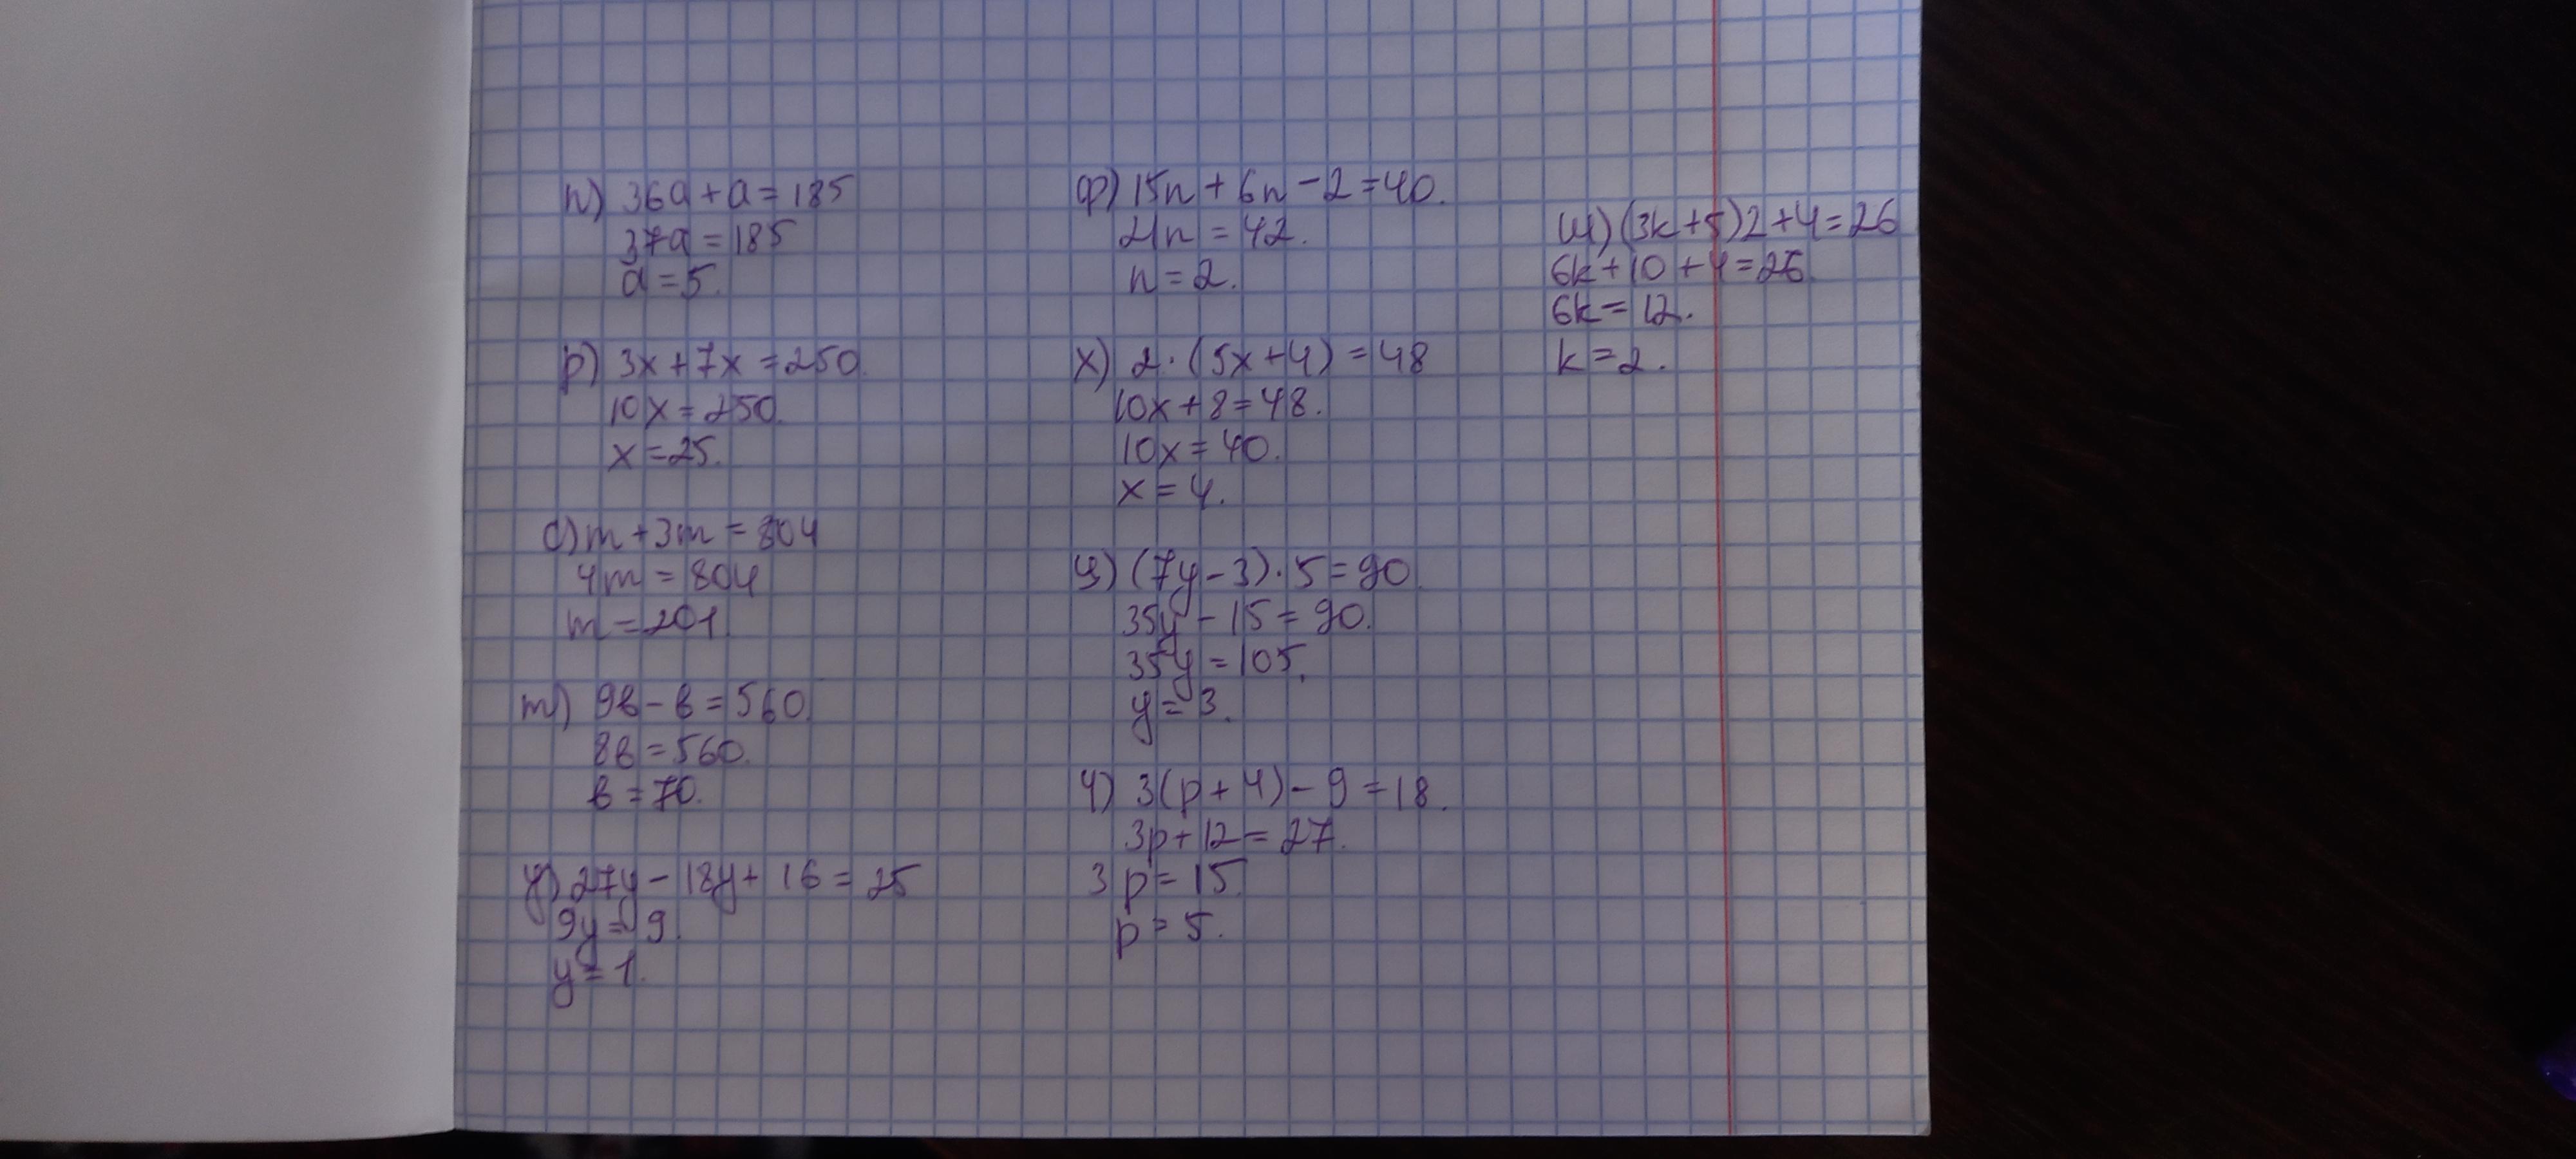 п) 36a + a = 185
37a = 185
a = 5.
р) 3x + 7x = 250.
10x = 250.
x = 25.
с) m + 3m = 804
4m = 804
m = 201.
т) 9в - в = 560.
8в = 560.
в = 70.
у) 27y - 18y + 16 = 25
9y = 9.
y = 1.
ф) 15n + 6n - 2 = 40.
21n = 42.
n = 2.
х) 2 · (5x + 4) = 48
10x + 8 = 48.
10x = 40.
x = 4.
ц) (7y - 3) · 5 = 90.
35y - 15 = 90.
35y = 105.
y = 3.
ч) 3(p + 4) - 9 = 18.
3p + 12 = 27.
3p = 15.
p = 5.
ш) (3k + 5)2 + 4 = 26
6k + 10 + 4 = 26.
6k = 12.
k = 2.